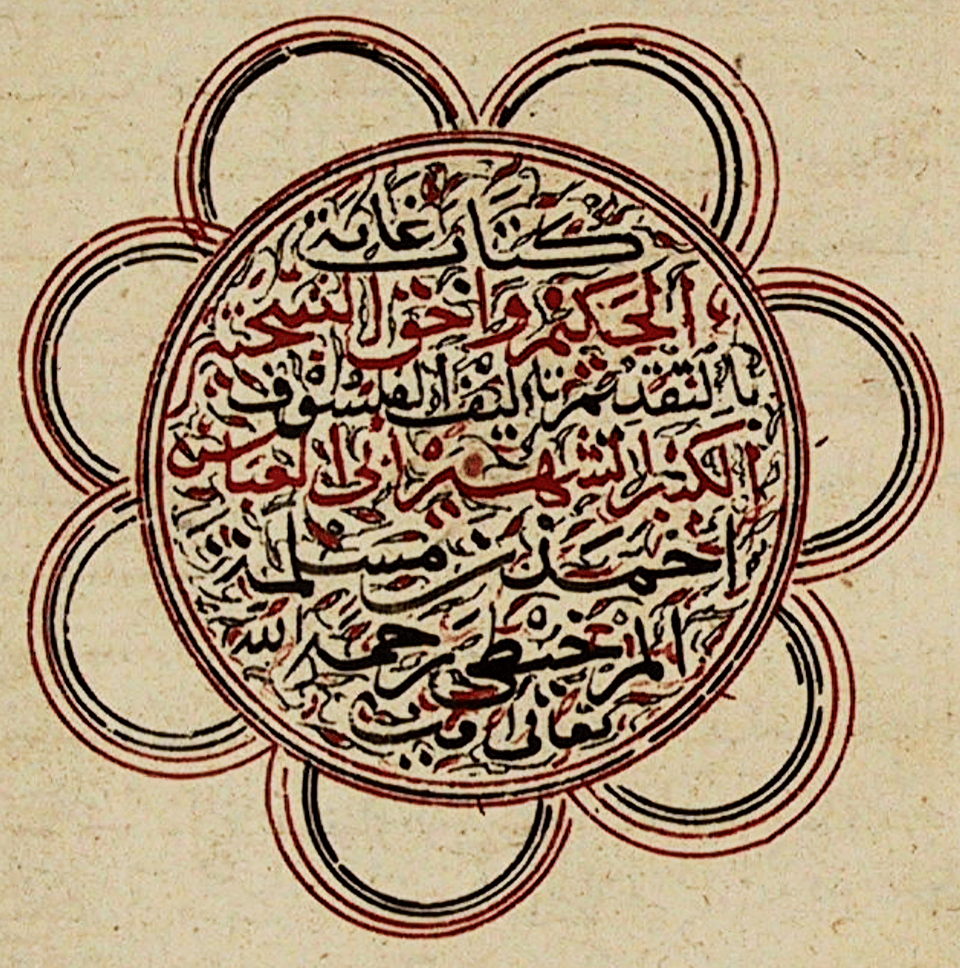 كتاب غاية
الحكيم واحق النتيجتين
بالتقديم تاليف الفيلسوف
الكبير الشهير ابي العباس
احمد بن مسلمة
المرخيطي رحمه الله
تعالى